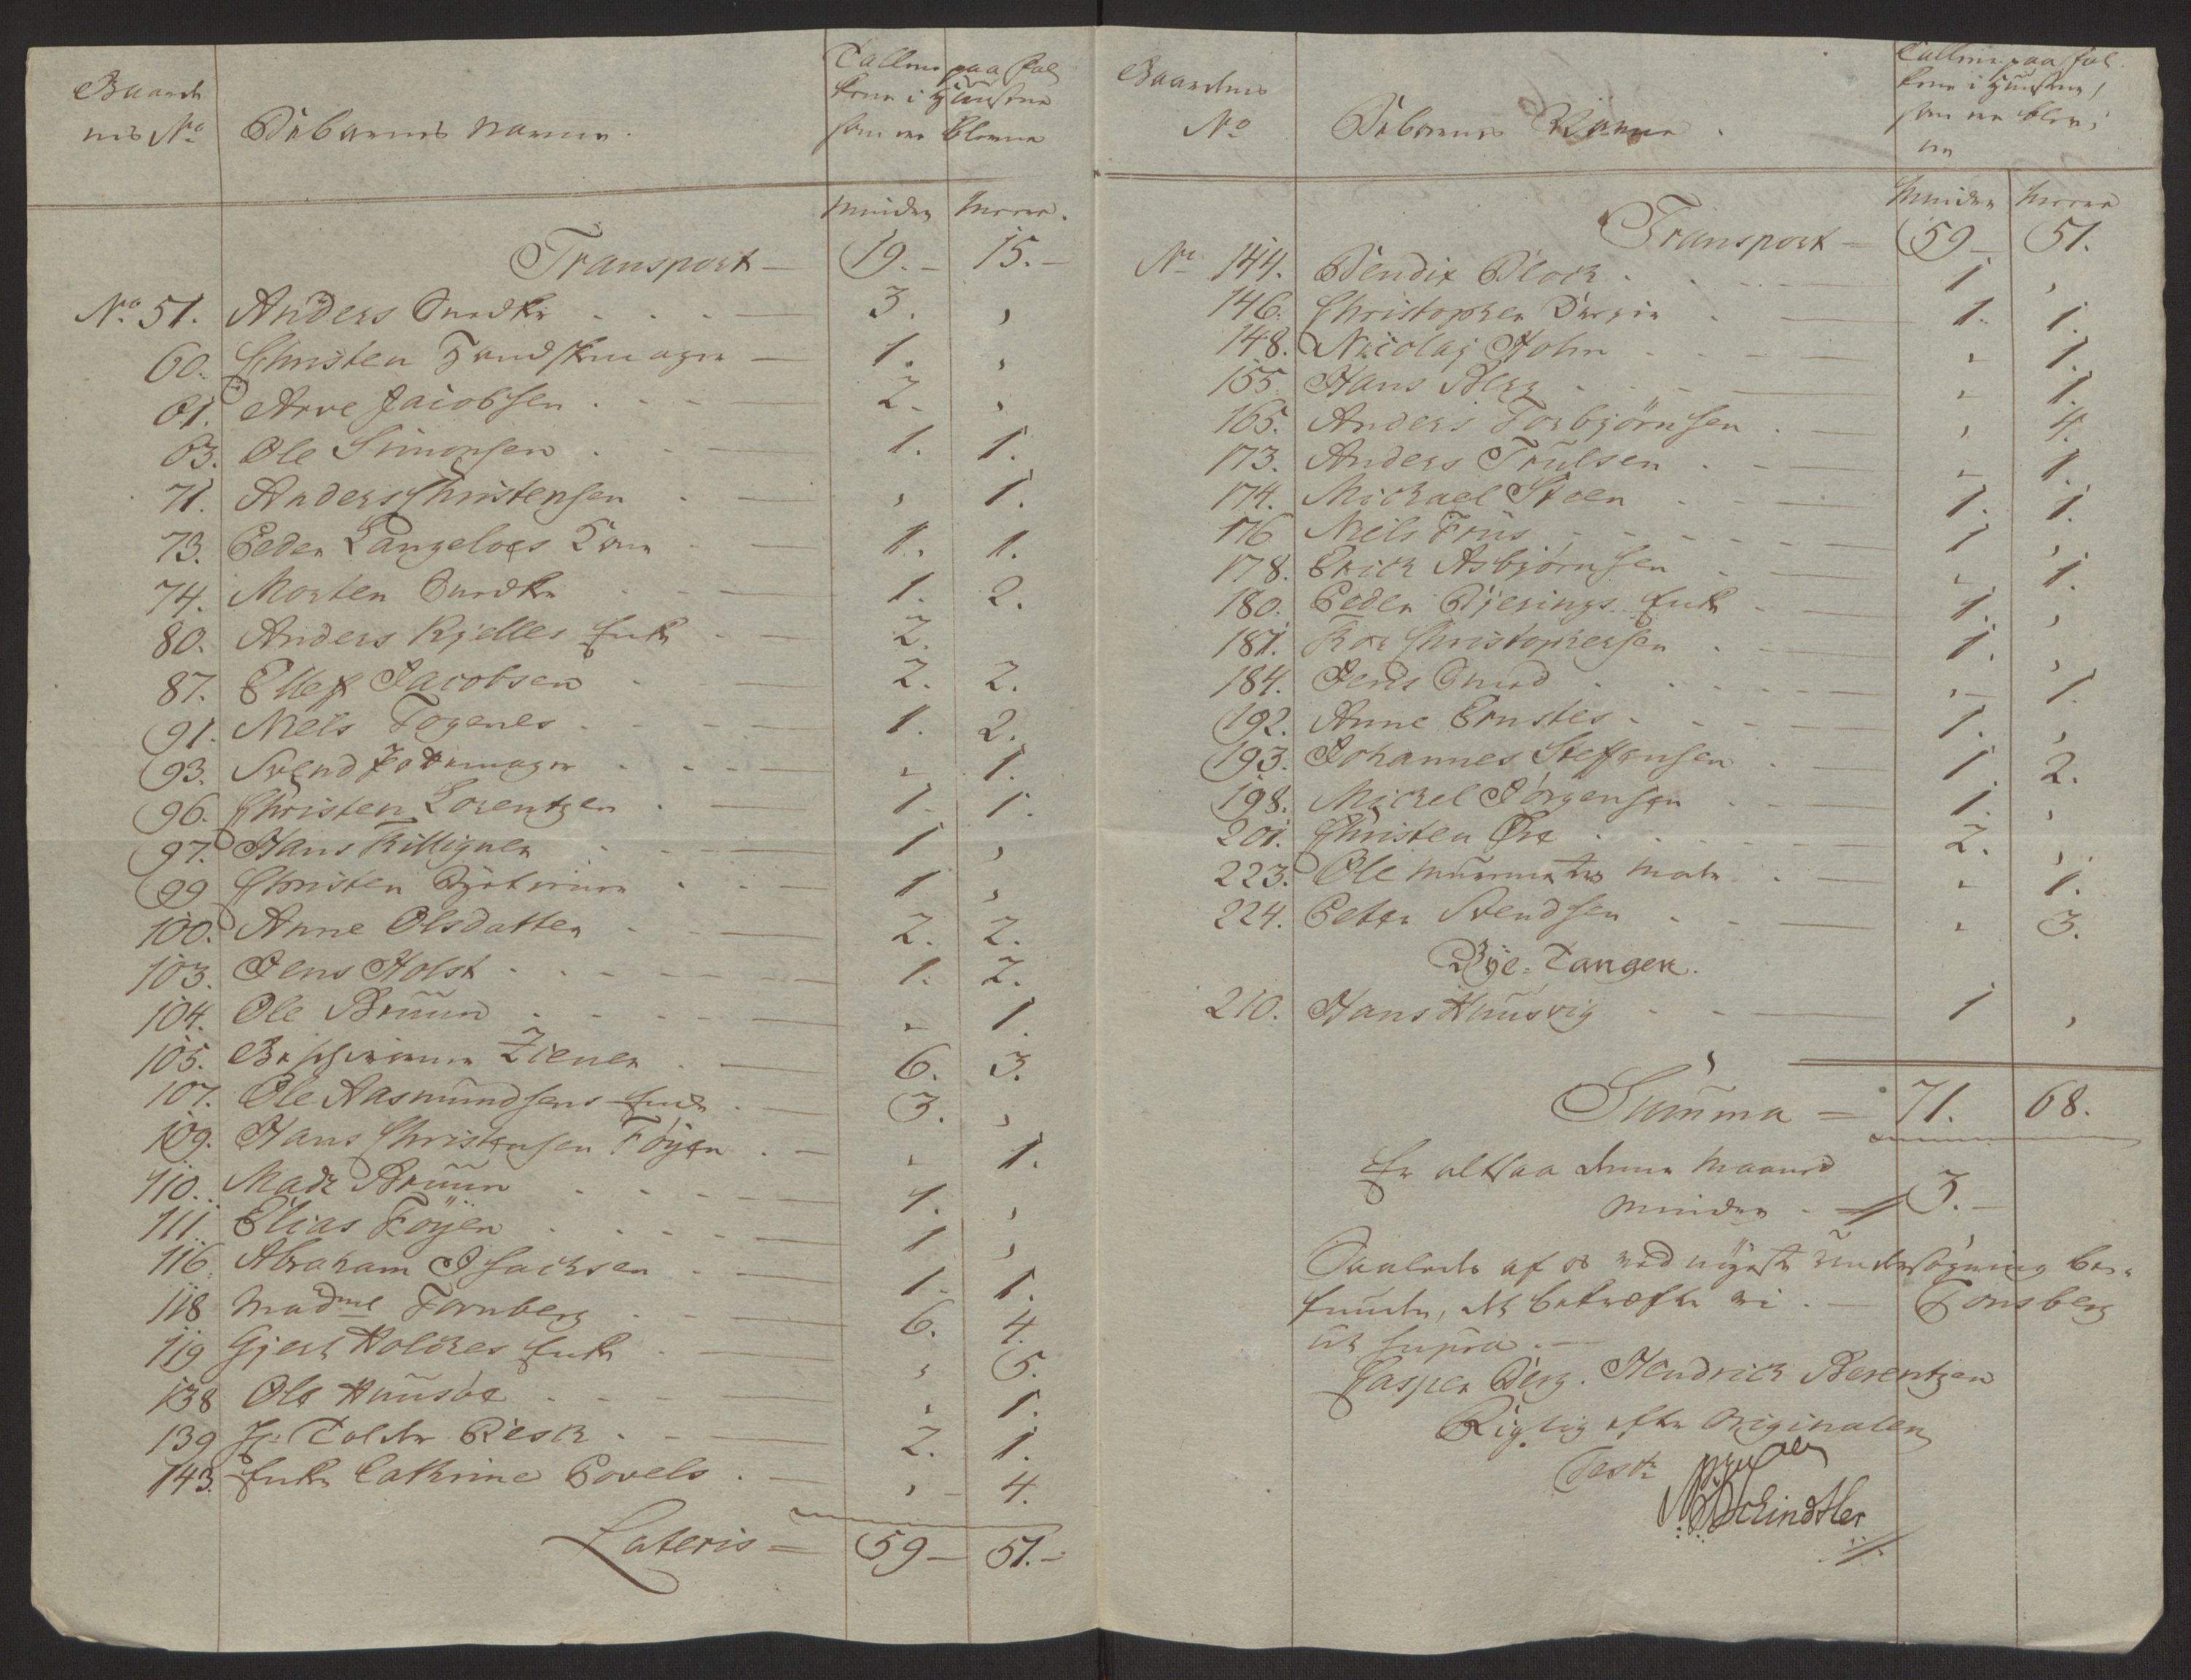 Gaard
nes No
Beboernes Navne.
Tallene paa Fol
kene i Huusene
som ere blevne
minder
meere.
Transport — 19. — 15. —
No. 51. Anders Smedk . . . — 3. ,
60. Christen Handskemager — 1. ,
61. Arve Jacobsen . . . — 2. ,
63. Ole Simonsen . . — 1. 1.
71. Anders Christensen . — , 1.
73. Peder Langeloes — 1. 1.
74. Morten . . — 1. 2.
80. Anders Kjelles Enke . — 2.
87. Ellef Jacobsen . . — 2. 2.
91. Niels Togenes . . . — 1. 2.
93. Svend Pottemager . . . — , 1.
96. Christen Lorentzen . — 1. 1.
97. Hans Killigner . . — 1 ,
99 Christen . . — 1 ,
100. Anne Olsdatter . . — 2. 2.
103. Jens Holst . . . . — 1. 2.
104. Ole Bruun . . . . — , 1.
105. Ziener . — 6. 3.
107. Ole Aasmundsens Enke . — 3. ,
109. Hans Christensen Föyen . — , 1.
110. Madz Bruun . . . . — 1. ,
111. Elias Föyen . . . . — 1 ,
116 Abraham Isacksen . . — 1. 1.
118 Madme Fornberg . . — 6. 4.
119 Gjert Holckes Enke . — , 5.
138 Ole Huusöe . . . — , 1.
139 Hr. Tolder Resch . . — 2. 1.
143. Enke Cathrine Povels . — , 4.
Lateris = 59 — 51. —
Gaardens
No
Beboernes Navne.
Tallene paa Fol
kene i Huusene,
som ere blev,
ne
minder
meere
Transport = 59 — 51.
No 144. Bendix Block . . . — 1 ,
146. Christopher . — 1. 1.
148. Nicolaj Holm . . . — , 1.
155 Hans Berg . . . — , 1.
165. Anders Torbjörnsen . — , 4.
173. Anders Trulsen . . — , 1.
174. Michael Steen . . — 1. 1.
176 Niels Friis . . . . — 1 ,
178. Erich Asbjörnsen . — , 1.
180. Peder Bjerings Enke . — 1. ,
181. Christophersen . — 1. ,
184. Jens Smed . . . . — , 1.
192. Anne Ernstes . . . — 1. ,
193. Johannes Steffensen . — 1. 2.
198. Michel Jörgensen . . — 1. ,
201. Christen Öre . . . — 2. ,
223. Ole Muurmester . — , 1.
224. Peter Svendsen . . — , 3.
Bye-Tangen.
210. Hans Huusvig . . — 1 ,
Summa = 71. 68.
Er altsaa denne Maaned
minder . = 3. —
Saaledes af os ved nøyeste Undersögning be-
funden, det bekræfte vi . — Tonsberg
ut supra . —
Casper Berg. Hendrich Berentzen
Rigtig efter Originalen
Test:
Schindtler